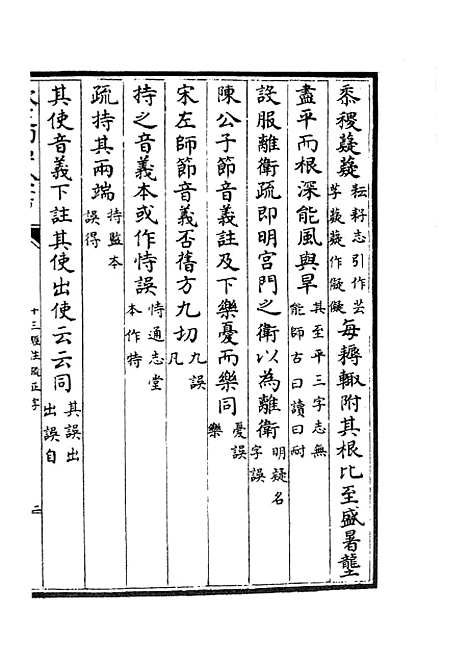 黍稷薿薿耘耔志引作芸芓薿薿作儗儗每耨輒附其根比至盛暑壟
盡平而根深能風與旱其至平三字志無能師古曰讀曰耐
設服離衛疏即明宫門之衛以為離衛明疑名字誤
陳公子節音義註及下樂憂而樂同憂誤樂
宋左師節音義否舊方九切九誤凡
持之音義本或作恃誤恃通志堂本作特
疏持其兩端持監本誤得
其使音義下註其使出使云云同其誤出出誤自
十三經注疏正字
二